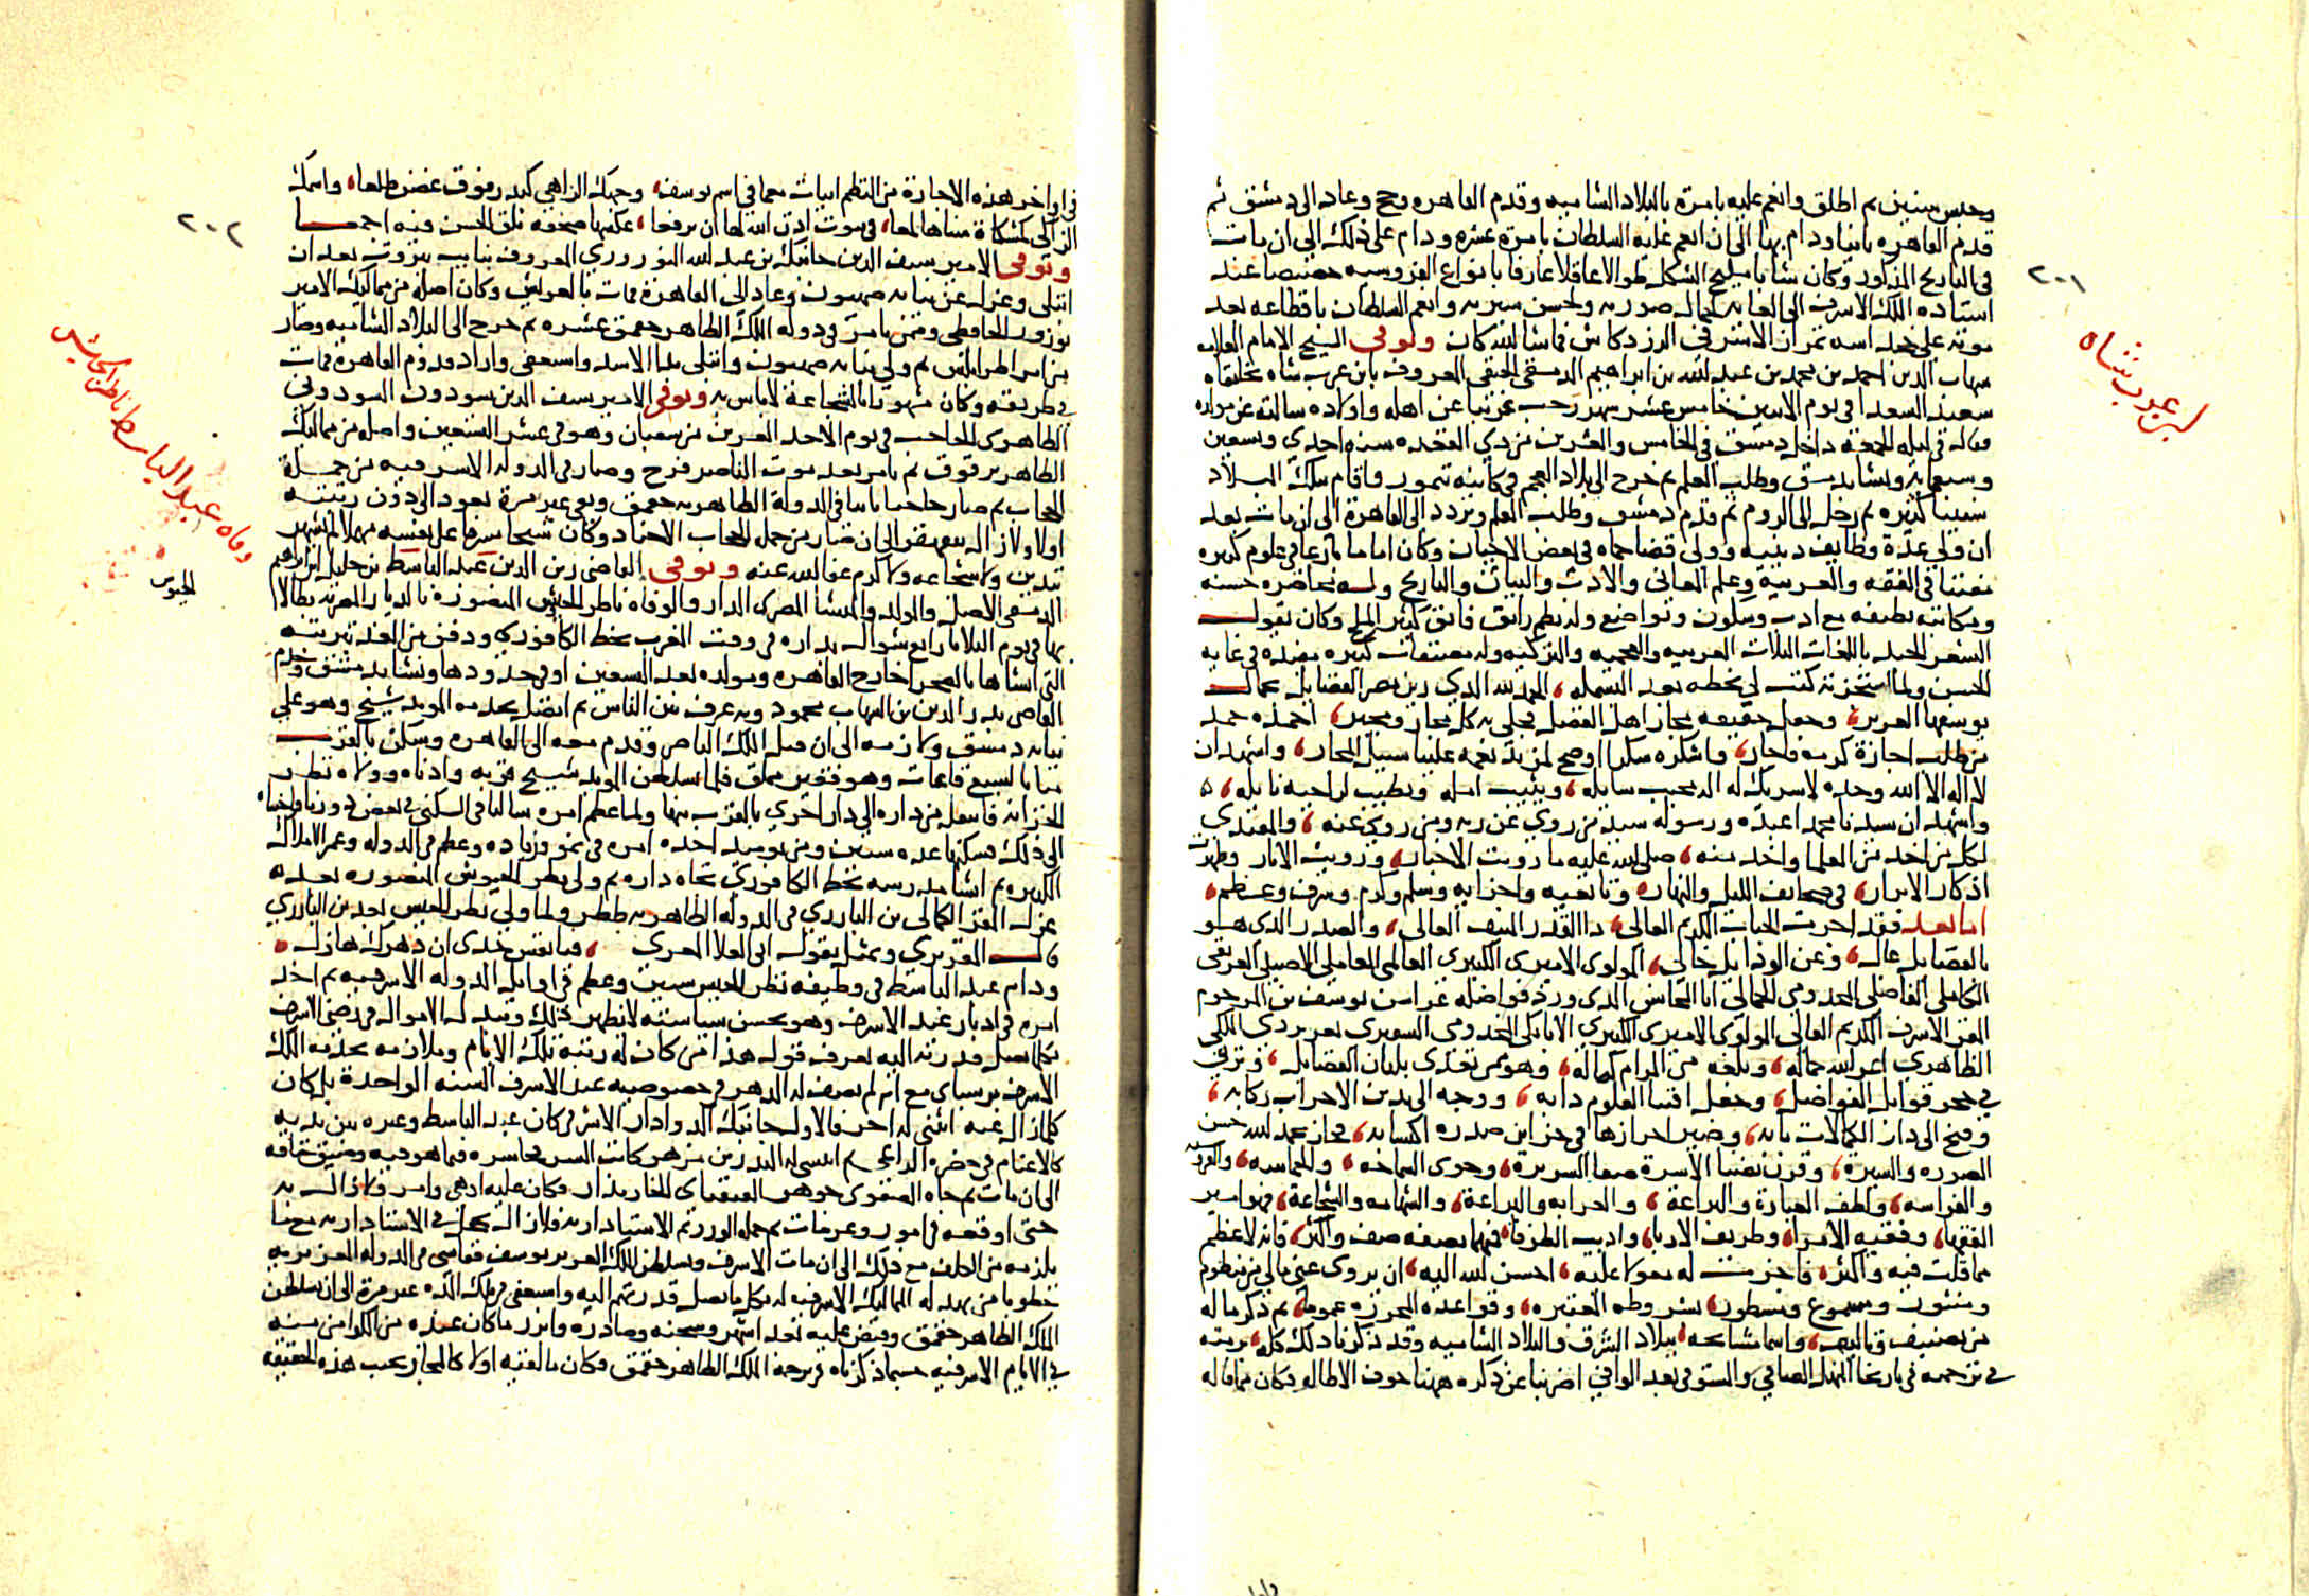 وحبس سنين ثم اطلق وانعم عليه بامرة بالبلاد الشاميه وقدم القاهره وحج وعاد الى دمشق ثم
قدم القاهره ثانيا ودام بها الى ان انعم عليه السلطان بامرة عشره ودام على ذلك الى ان مات
في التاريخ المذكور وكان شابا مليح الشكل طوالا عاقلا عارفا بانواع الفروسيه خصيصا عند
استاذه الملك الاشرف الى الغايه لجمال صورته ولحسن سيرته وانعم السلطان باقطاعه بعد
موته على اسمه تمراز الاشرفي الزردكاش فما شا الله كان وتوفى الشيخ الامام العلامه
شهاب الدين احمد بن محمد بن عبد الله بن ابراهيم الدمشقي الحنفي المعروف بابن عرب شاه بخانقاه
سعيد السعدا في يوم الاثنين خامس عشر شهر رجب غريبا عن اهله واولاده سالته عن مولده
فقال في ليله الجمعه داخل دمشق في الخامس والعشرين من ذي القعده سنه احدي وتسعين
وسبعمايه ونشا بدمشق وطلب العلم ثم خرج الى بلاد العجم في كاينه تيمور واقام بتلك البلاد
سنينا كثيره ثم رحل الى الروم ثم قدم دمشق وطلب العلم وتردد الى القاهرة الى ان مات بعد
ان ولي عدة وظايف دينيه وولى قضا حماه في بعض الاحيان وكان اماما بارعا في علوم كثيره
مفننا في الفقه والعربية وعلم المعانى والادب والبيان والتاريخ وله محاضره حسنه
ومكاتبه لطيفه مع ادب وسكون وتواضع وله نظم رائق فائق كثير الملح وكان يقول
الشعر الجيد باللغات الثلاث العربيه والعجميه والتركيه وله مصنفات كثيره مفيده في غايه
الحسن ولما استجزته كتب لي بخطه بعد البسمله، الحمد لله الذي زين مصر الفضايل بجمال
يوسفها العزيز، وجعل حقيقه مجاز اهل الفضل محلى به كل مجاز ومجيز، احمده حمد
من طلب اجازة كرمه فاجاز، واشكره شكرا اوضح لمزيد نعمه علينا سبيل المجاز، واشهد ان
لا اله الا الله وحده لا شريك له اله يجيب سايله، ويثيب امله ويطيب لراجيه نايله،
واشهد ان سيدنا محمدا عبده ورسوله سيد من روي عن ربه ومن روي عنه، والمقتدي
لكل من اخذ من العلما واخذ منه، صلى الله عليه ما رويت الاخبار، ورويت الاثار
اذكار الابرار، في صحايف الليل والنهار وتابعيه واحزابه وسلم وكرم وشرف وعظم،
اما بعد فقد اجزت الجناب الكريم العالي، ذا القدر المنيف الغالي، والصدر الذى هو
بالفضايل عال، وعن الرذايل خالي، المولوى الاميرى الكبيري العالمى العاملي الاصيلي العريقى
الكاملى الفاضلي المخدومي الجمالي ابا المحاسن الذى ورد فواضله يوسف بن المرحوم
المقر الاشرف الكريم العالى المولوى الاميرى الكبيري الاتابكى المخدومى السيفي تغري بردي الملكى
الظاهري اعز الله جماله، وبلغه من المرام كماله، وهو ممن تغذى بلبان الفضايل، وتربى
في حجر قوابل الفواضل، وجعل اقتنا العلوم دابه، ووجه الى مدين الاداب ركابه،
وفتح الى دار الكمالات بابه، وصير احرازها في خزاين صدره اكتسابه، فحاز بحمد الله حسن
الصوره والسيرة، وقرن بضيا الاسرة صفا السريرة، وحوى السماحه، والحماسه
والفراسه، ولطف العبارة والبراعة، والشهامه والشجاعة، فهو امير
الفقها، وفقيه الامرا، وظريف الادبا، واديب الظرفا، فمهما تصفه صف واكثر، فانه لاعظم
مما قلت فيه واكثر، فاجزت له معولا عليه، احسن الله اليه، ان يروى عني مالي من منظوم
ومنثور ومسموع ومسطور بشروطه المعتبره، وقواعده المحرره عموما، ثم ذكر ما له
من تصنيف وتاليف، واسما مشايخه، ببلاد الشرق والبلاد الشاميه وقد ذكرنا ذلك كله برمته
في ترجمته في تاريخنا المنهل الصافي والمستوفى بعد الوافي اضربنا عن ذكره ههنا خوف الاطاله فكان مما قاله
٢٠١
ابن عرب شاه
في اواخر هذه الاجازة من النظم ابيات معما في اسم يوسف، وجهك الزاهي كبدر فوق غصن طلعا، واسمك
الزاكي كمشكاة سناها لمعا، في بيوت اذن الله لها ان ترفعا، عكسها صحفه تلق الحسن فيه اجمعا
وتوفى الامير سيف الدين جانبك بن عبد الله النوروزي المعروف بنايب بيروت بعد ان
ابتلى وعزل عن نيابه صهيون وعاد الى القاهرة فمات بالعريش وكان اصله من مماليك الامير
نوروز الحافظى وممن تامر في دوله الملك الظاهر جقمق عشره ثم خرج الى البلاد الشاميه وصار
من امرا طرابلس ثم ولي نيابه صهيون وابتلى بدا الاسد واستعفى واراد قدوم القاهرة فمات
في طريقه وكان مشهورا بالشجاعة لا باس به وتوفى الامير سيف الدين سودون السودونى
الظاهرى الحاجب في يوم الاحد العشرين من شعبان وهو في عشر السبعين واصله من مماليك
الظاهر برقوق ثم تامر بعد موت الناصر فرج وصار في الدوله الاشرفيه من جملة
الحجاب ثم صار حاجبا ثانيا في الدولة الظاهريه جقمق ونفى غير مرة يعود الى دون رتبته
اولا ولا زال يتقهقر الى ان صار من جمله الحجاب الاجناد وكان شيخا مسرفا على نفسه مهملا لم يشهر
بتدين ولا شجاعه ولا كرم عفا الله عنه وتوفى القاضى زين الدين عبد الباسط بن خليل بن ابراهيم
الدمشقى الاصل والمولد والمنشا المصرى الدار والوفاه ناظر الجيوش المنصورة بالديار المصريه بطالا
بها في يوم الثلاثا رابع شوال بداره في وقت المغرب بخط الكافوري ودفن من الغد بتربته
التي انشاها بالصحرا خارج القاهره ومولده بعد التسعين او في حدودها ونشا بدمشق وخدم
القاضى بدر الدين بن الشهاب محمود وبه عرف بين الناس ثم اتصل بخدمه المويد شيخ وهو على
نيابه دمشق ولازمه الى ان قتل الملك الناصر وقدم معه الى القاهره وسكن بالقرب
منا بالسبع قاعات وهو فقير مملق فلما تسلطن المويد شيخ قربه وادناه وولاه نظر
الخزانه فانتقل من داره الى دار اخري بالقرب منها ولما عظم امره سالنا في السكنى في بعض دورنا فاجبناه
الى ذلك فسكنها عده سنين ومن يوميد اخذ امره في نمو وزياده وعظم في الدوله وعمر الاملاك
الكثيره ثم انشا مدرسه بخط الكافوري تجاه داره ثم ولي نظر الجيوش المنصوره بعد
عزل المقر الكمالى بن البارزي في الدوله الظاهريه ططر ولما ولي نظر الجيش بعد بن البارزي
قال المقريزي وتمثل بقول ابى العلا المعرى، فيا نفس جدى ان دهرك هازل
ودام عبد الباسط في وظيفه نظر الجيش سنين وعظم في اوايل الدوله الاشرفيه ثم اخذ
امره في ادبار عند الاشرف وهو بحسن سياسته لا يظهر ذلك ويبذل الاموال في رضى الاشرف
بكل ما تصل قدرته اليه يعرف قوله هذا من كان له رتبة تلك الايام وملازمه بخدمه الملك
الاشرف برسباى مع انه لم يصف له الدهر في خصوصيه عند الاشرف السنه الواحدة بل كان
كلما زال عنه انثنى له اخر فالاول جانبك الدوادار الاشرفى كان عبد الباسط وغيره بين يديه
كالاغنام في حضره الراعى ثم انتشى له البدر بن مزهر كاتب السر فحاسره فيما هو فيه وضيق خناقه
الى ان مات ثم جاه الصفوى جوهر القنقباى الخازندار فكان عليه ادهى وامر ولا زال به
حتى اوقعه في امور وغرمات ثم حمله الوزر ثم الاستاداريه ولا زال يتحمل في الاستاداريه ما
يلزمه من الكلف مع ذلك الى ان مات الاشرف وتسلطن الملك العزيز يوسف فقاسى في الدوله العزيزيه
خطوبا من بهدله المماليك الاشرفيه له بكل ما تصل قدرتهم اليه واستعفى في تلك المده غير مرة الى ان تسلطن
الملك الظاهر جقمق وقبض عليه بعد اشهر وسجنه وصادره وابرز ما كان عنده من الكوامن منه
في الايام الاشرفيه حسبما ذكرناه في ترجمة الملك الظاهر جقمق فكان ما لقيه اولا كالمجاز بجنب هذه الحقيقه
٢٠٢
وفاه عبد الباسط ناظر الجيش
الجيوش